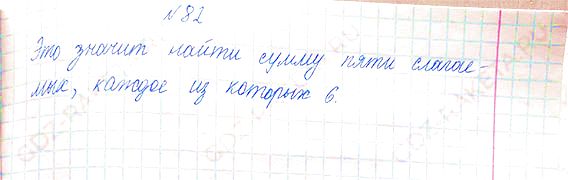 №82
Это значит найти сумму пяти слагае-
мых, каждое из которых 6.